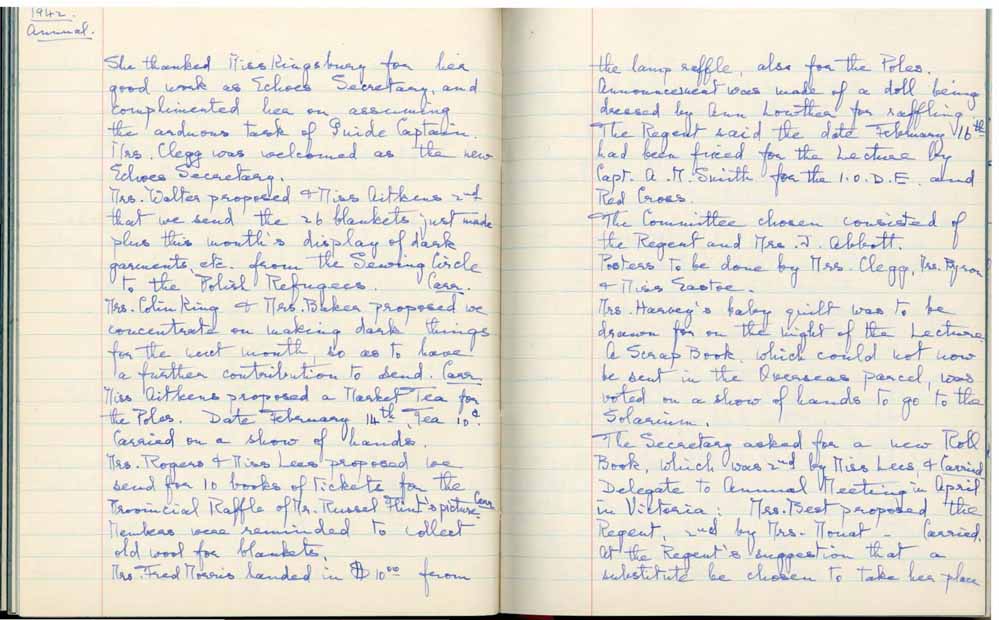 1942.
Annual.
She thanked Miss Kingsbury for her
good work as Echoes Secretary, and
complimented her on assuming
the arduous task of Guide Captain.
Mrs. Clegg was welcomed as the new
Echoes Secretary.
Mrs. Walter proposed & Miss Aitkens 2nd
that we send the 26 blankets just made
plus this month's display of dark
garments, etc. from the Sewing Circle
to the Polish Refugees. Carr.
Mrs. Colin King & Mrs. Baker proposed we
concentrate on making dark things
for the next month, so as to have
a further contribution to send. Carr
Miss Aitkens proposed a Market Tea for
the Poles. Date February 14th, Tea 10¢.
Carried on a show of hands.
Mrs. Rogers & Miss Lees proposed we
send for 10 books of Tickets for the
Provincial Raffle of Mr. Russel Flint's picture. Carr
Members were reminded to collect
old wool for blankets.
Mrs. Fred Morris handed in $10.00 from
the lamp raffle, also for the Poles.
Announcement was made of a doll being
dressed by Ann Lowther for raffling.
The Regent said the date February 16th
had been fixed for the Lecture by
Capt. A. M. Smith for the I.O.D.E. and
Red Cross.
The Committee chosen consisted of
the Regent and Mrs. J. Abbott.
Posters to be done by Mrs. Clegg, Mrs. Byron
& Miss Eastoe.
Mrs. Harvey's baby quilt was to be
drawn for on the night of the Lecture.
A Scrap Book, which could not now
be sent in the Overseas parcel, was
voted on a show of hands to go to the
Solarium.
The Secretary asked for a new Roll
Book, which was 2nd by Miss Lees, & Carried
Delegate to Annual Meeting in April
in Victoria: Mrs. Best proposed the
Regent, 2nd by Mrs. Mouat - Carried.
At the Regent's suggestion that a
substitute be chosen to take her place